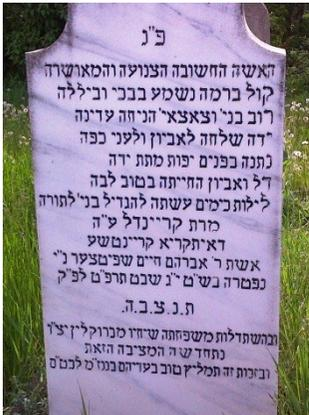 פ"נ
האשה החשובה הצנועה והמאושרה
קול ברמה נשמע בבכי ויללה
רוב בני' וצאצאי' הניחה עדינה
ידה שלחה לאביון ולעני כפה
נתנה בפנים יפות מתת ידה
דל ואביון החייתה בטוב לבה
לילות כימים עשתה להגדיל בני' לתורה
מרת קריינדל ע"ה
דאיתקריא קריינטשע
אשת ר' אברהם חיים שפיטצער נ"י
נפטרה בש"ט י"ג שבט תרפ"ט לפ"ק
ת.נ.צ.ב.ה.
ובהשתדלות משפחתה שיחיו מברוקלין יצ"ו
נתחדשה המציבה הזאת
ובזכות זה תמליץ טוב בעדיהם בגנז"מ לבט"ס